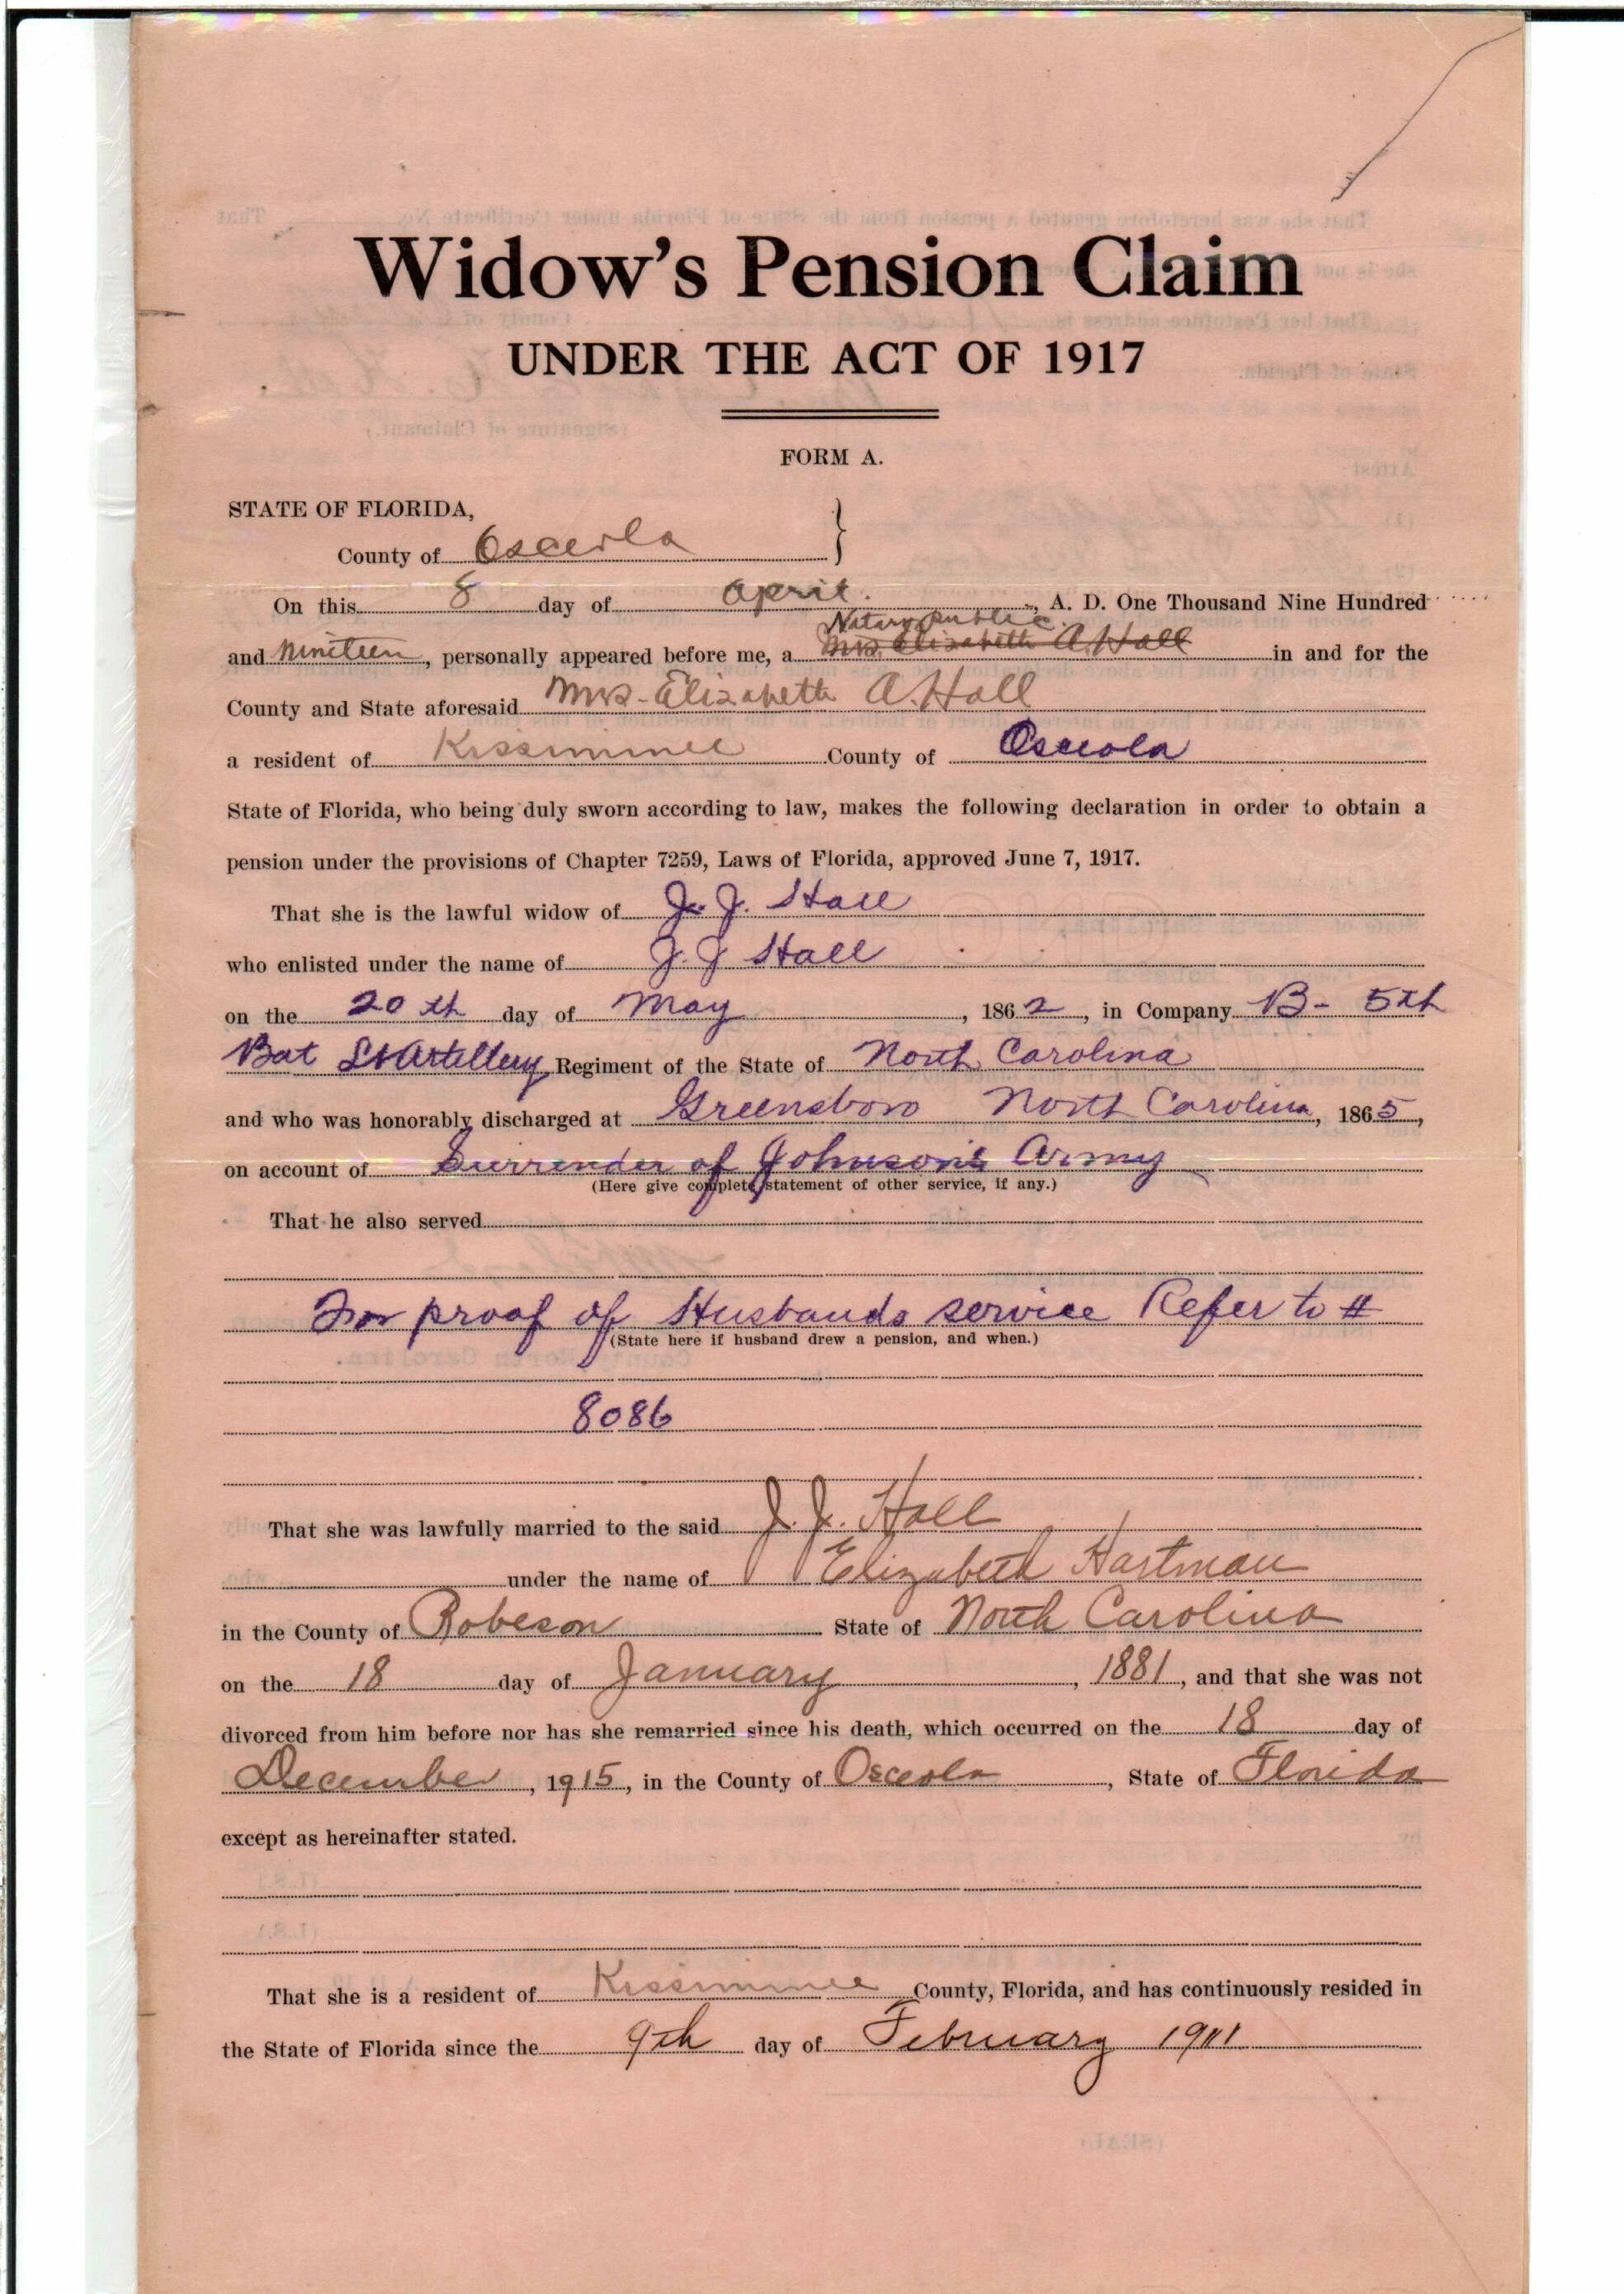 Widow's Pension Claim
UNDER THE ACT OF 1917
FORM A.
STATE OF FLORIDA,
County of Osceola
On this 8 day of April, A. D. One Thousand Nine Hundred
Notary Public
and Nineteen, personally appeared before me, a Mrs. Elizabeth A. Hall in and for the
County and State aforesaid Mrs. Elizabeth A. Hall
a resident of Kissimmee County of Osceola
State of Florida, who being duly sworn according to law, makes the following declaration in order to obtain a
pension under the provisions of Chapter 7259, Laws of Florida, approved June 7, 1917.
That she is the lawful widow of J. J. Hall
who enlisted under the name of J. J Hall
on the 20th day of May, 1862, in Company B- 5th
Bat Lt Artillery Regiment of the State of North Carolina
and who was honorably discharged at Greensboro North Carolina, 1865,
on account of Surrender of Johnson's Army
(Here give complete statement of other service, if any.)
That he also served
For proof of Husbands service Refer to #
(State here if husband drew a pension, and when.)
8086
That she was lawfully married to the said J. J. Hall
under the name of Elizabeth Hartman
in the County of Robeson State of North Carolina
on the 18 day of January, 1881, and that she was not
divorced from him before nor has she remarried since his death, which occurred on the 18 day of
December, 1915, in the County of Osceola, State of Florida
except as hereinafter stated.
That she is a resident of Kissimmee County, Florida, and has continuously resided in
the State of Florida since the 9th day of February 1911